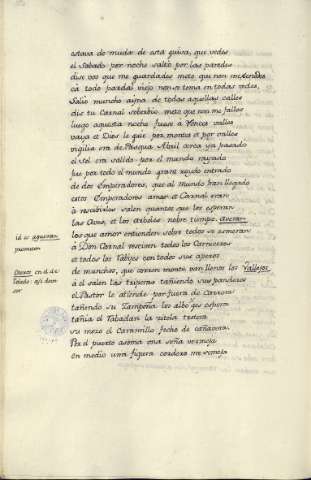 estava de mudar de esta guisa, que vedes
el Sabado por noche saltó por las paredes
dis: vos que me guardades meto que non me
ca todo pardal viejo non se toma en todas redes.
Salió muncho aína de todas aquellas calles
dis tu Carnal soberbio meto que non falles
luego aquesta noche fues a
vaya el Dios le guie por montes et por valles
vigilia era de Pasqua Abril cerca ya pasado
el Sol era salido por el mundo rayado
fue por todo el mundo grant roydo entrado
de dos Emperadores, que al mundo han llegado
estos Emperadores amar et Carnal eran
a rescibirlos salen quantos que les esperan
las Aves, et los arboles nobre tiempo averan
los que amor entienden sobre todos se esmeran
A Don Carnal resciven todos los Carniceros
et todos los Tabijos con todos sus aperos
de munchos, que corren monte van llenos los Vallejos,
a el salen las trijeras taniendo sus panderos
el Pastor le atiende por fuera de carrera
tañendo su zampoña los albogues espera
tañia el Rabadan la zitola trotera
su mozo el Caramillo fecho de cañavera.
Por el puerto asoma una seña vermeja
en medio una figura cordero me semeja
id. es aguieran
puercuen
Oteros en el de
Toledo est deve
ser